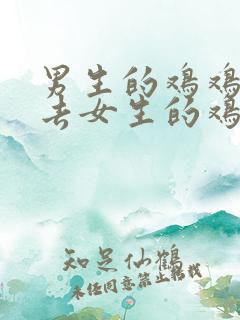 男生的鸡鸡
去女生的鸡
知足仙鹤
未经同意禁止搬载